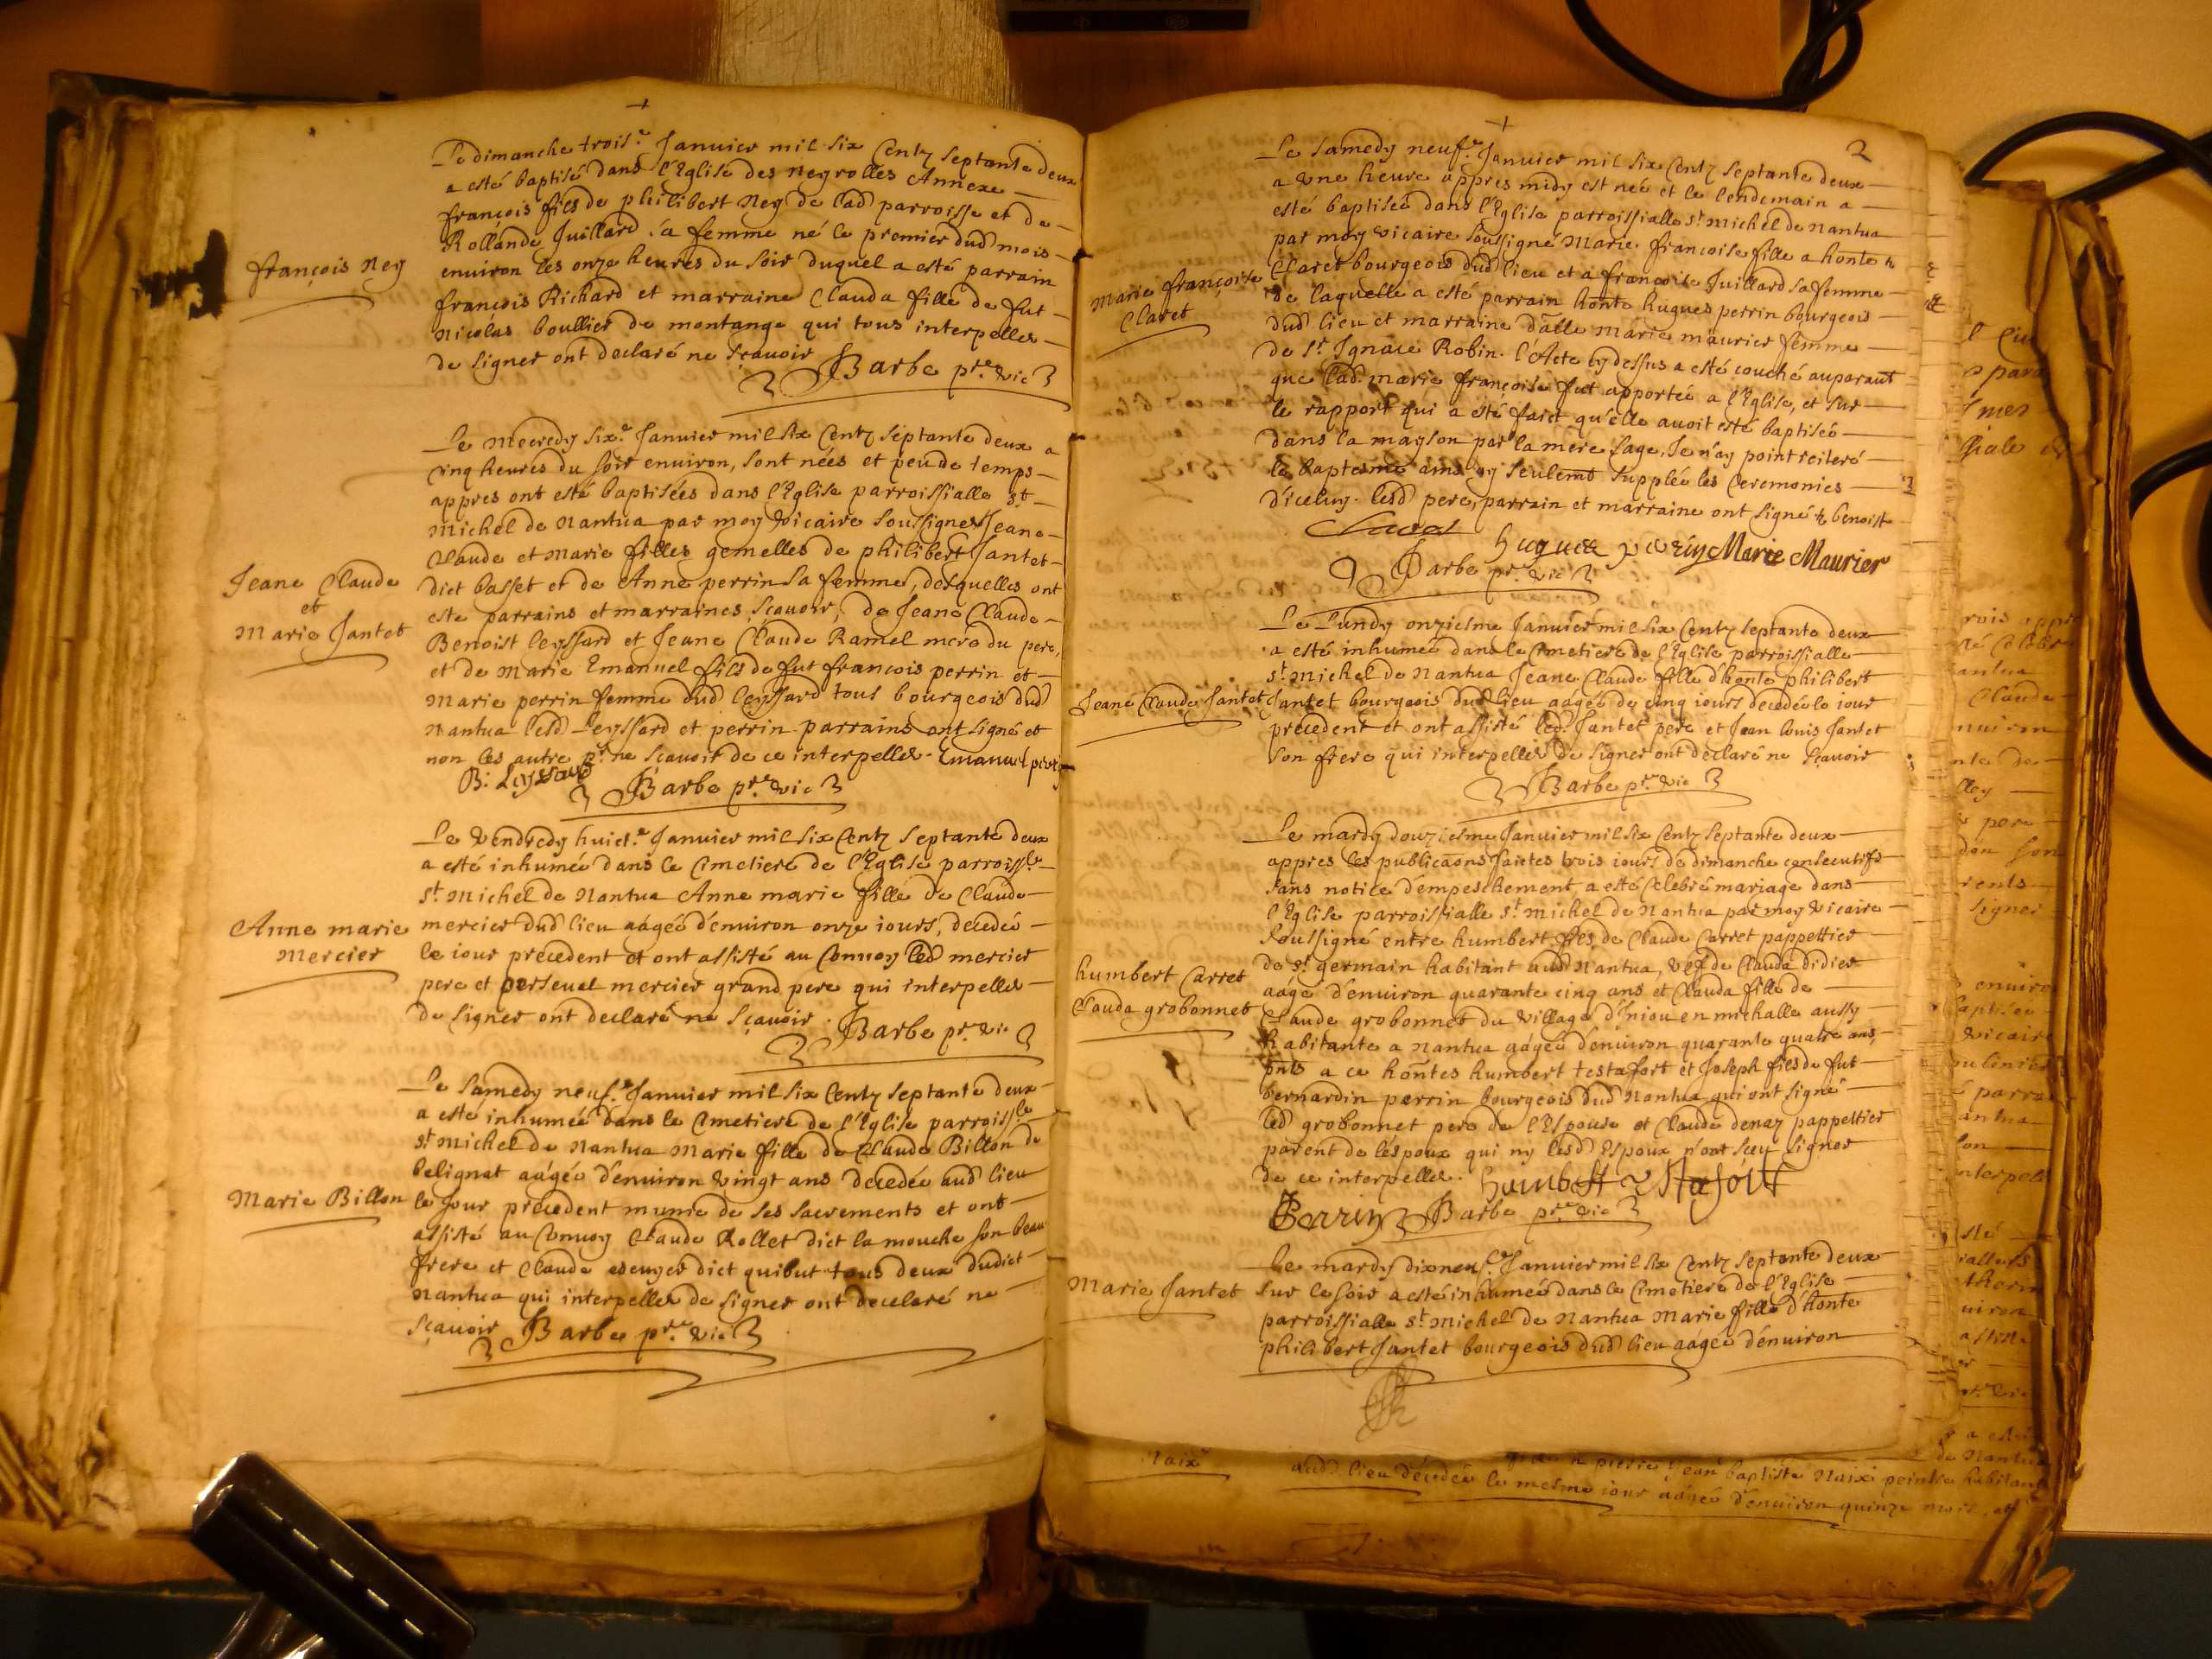 Le dimanche trois.e Januier mil six Centz septante deux
a esté baptisé dans l'Eglise des neyrolles Annexe
françois fils de philibert Ney de lad parroisse et de
Rollande Juillard sa femme né le premier dud mois
enuiron les onze heures du soir duquel a esté parrain
françois Richard et marraine Clauda fille de fut
nicolas boullier de montange qui tous interpelles
de signer ont declaré ne sçauoir Barbe pre. vic
françois Ney
Le Mecredy six.e Januier mil six Centz septante deux a
cinq heures du soir enuiron, sont nées et peu de temps
appres ont esté baptisées dans l'Eglise parroissialle st
michel de Nantua par moy vicaire soussignes Jeane
Claude et Marie filles gemelles de philibert Jantet
dict basset et de Anne perrin sa femme, desquelles ont
esté parrains et marraines, sçauoir, de Jeane Claude
Benoist leyssard et Jeane Claude Ramel mere du pere,
et de Marie Emanuel fils de fut francois perrin et
Marie perrin femme dud leyssard tous bourgeois dud
Nantua lesd Leyssard et perrin parrains ont signé et
non les autre pr. ne sçauoir de ce interpelles. Emanuel perrin
B: Leyssard
Barbe pre. vic
Jeane Claude
et
Marie Jantet
Le Vendredy huict.e Januier mil six Centz septante deux
a esté inhumée dans le Cimetiere de l'Eglise parroissle
st. michel de Nantua Anne marie fille de Claude
mercier dud lieu aagée d'enuiron onze iours, decedée
le iour precedent et ont assisté au Conuoy led mercier
pere et perseual mercier grand pere qui interpelles
de signer ont declaré ne sçauoir. Barbe pr. vic
Anne marie
mercier
Le samedy neuf.e Januier mil six Centz septante deux
a esté inhumée dans le Cimetiere de l'Eglise parroissle
st michel de Nantua Marie fille de Claude Billon de
belignat aagée d'enuiron vingt ans decedée aud lieu
le Jour precedent munie de ses sacrements et ont
assisté au Conuoy Claude Rollet dict la mouche son beau
frere et Claude dict quibut tous deux dudict
Nantua qui interpelles de signer ont declaré ne
sçauoir Barbe pre. vic
Marie Billon
2
Le samedy neuf.e Januier mil six Centz septante deux
a vne heure appres midy est née et le lendemain a
esté baptisée dans l'Eglise parroissialle st michel de Nantua
par moy vicaire soussigné Marie francoise fille a honte
Claret bourgeois dud lieu et a francoise Juillard sa femme
de laquelle a esté parrain honte hugues perrin bourgeois
dud lieu et marraine dalle Marie maurier femme
de sr Ignace Robin. l'Acte cy dessus a esté couché auparaut
que lad. marie françoise fut apportée a l'Eglise, et sur
le rapport qui a esté faict qu'elle auoit esté baptisée
dans la mayson par la mere sage, Je n'ay point reiteré
le baptesme ains ay seulemt supplée les Ceremonies
d'iceluy. lesd pere, parrain et marraine ont signé benoist
Claret hugues perrin Marie Maurier
Barbe pr. vic
Marie françoise
Claret
Le Lundy onziesme Januier mil six Centz septante deux
a esté inhumée dans le Cimetiere de l'Eglise parroissialle
st. michel de Nantua Jeane Claude fille d'honte philibert
Jantet bourgeois dud lieu aagée de cinq iours decedée le iour
precedent et ont assisté led. Jantet pere et Jean louis Jantet
son frere qui interpelles de signer ont declaré ne sçauoir
Barbe pr. vic
Jeane Claude Jantet
Le mardy douziesme Januier mil six Centz septante deux
appres les publicaons faictes trois iours de dimanche consecutifs
sans notice d'empeschement a esté Celebré mariage dans
l'Eglise parroissialle st michel de Nantua par moy vicaire
soussigné entre humbert fils de Claude Carret pappettier
de st germain habitant aud Nantua, vef de Clauda didier
aagé d'enuiron quarante cinq ans et Clauda fille de
Claude grobonnet du village d'Iniou en michalle aussy
habitante a Nantua aagée d'enuiron quarante quatre ans,
pnts a ce hontes humbert testafort et Joseph fils de fut
bernardin perrin bourgeois dud Nantua qui ont signé
led grobonnet pere de l'Espouse et Claude denaz pappettier
parent de l'espoux qui ny lesd Espoux n'ont sceu signer
de ce interpelles. humbert Testafort
Perrin Barbe pre. vic
humbert Carret
Clauda grobonnet
Le mardy dixneuf.e Januier mil six Centz septante deux
sur le soir a esté inhumée dans le Cimetiere de l'Eglise
parroissialle st. michel de Nantua Marie fille d'honte
philibert Jantet bourgeois dud lieu aagée d'enuiron
Marie Jantet
Jean baptiste Naix peintre habitant
aud lieu decedée le mesme iour aagée d'enuiron quinze mois, et
Naix